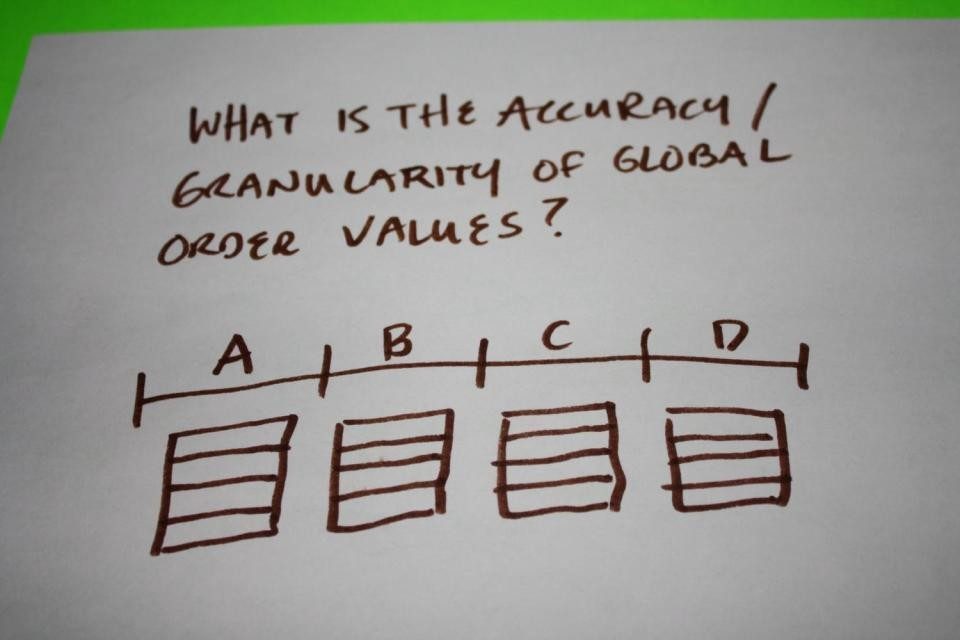 WHAT IS THE ACCURACY/
GRANULARITY OF GLOBAL
ORDER VALUES?
A B C D